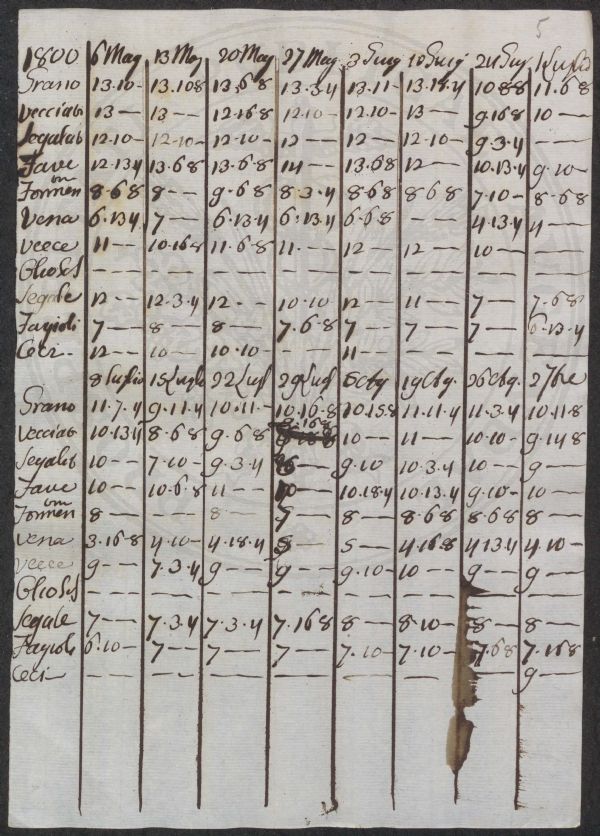 5
1800 6 Mag 13 Mag 20 Mag 27 Mag 3 Giug 10 Giug 24 Giug 1 Luglio
Grano 13.10- 13.10 8 13.6 8 13.3 4 13.11- 13.13.4 10.8 8 11.6 8
Vecciato 13 — 13 — 12.16 8 12.10- 12.10- 13 — 9.16 8 10 —
Segalato 12.10- 12.10- 12.10- 12 — 12 — 12.10- 9.3.4 — —
Fave 12.13 4 13.6 8 13.6 8 14 — 13.6 8 12 — 10.13.4 9.10-
Formen on 8.6 8 8 — 9.6 8 8.3.4 8.6 8 8.6 8 7.10- 8.6 8
Vena 6.13 4 7 — 6.13.4 6.13.4 6.6 8 — — 4.13.4 4 —
Vecce 11 — 10.16 8 11.6 8 11. — 12 — 12 — 10 — — —
— — — — — — — —
Segale 12 — 12.3.4 12 — 10.10 12 — 11 — 7 — 7.6 8
Fagioli 7 — 8 — 8 — 7.6 8 7 — 7 — 7 — 6.13.4
Ceci - 12 — 10 — 10.10- — 11 — — —
8 Luglio 15 Luglio 22 Lugl 29 Lugl 19 26
Grano 11.7.4 9.11.4 10.11- 10.16.8 10.15 8 11.11.4 11.3.4 10.11 8
Vecciato 10.13 4 8.6 8 9.6 8 8.16 8 10 — 11 — 10.10- 9.14 8
Segalato 10 — 7.10- 9.3.4 9.10 10.3.4 10 — 9 —
Fave 10 — 10.6 8 11 — 10 — 10.18.4 10.13.4 9.10- 10 —
Formen on 8 — — 8 — 8 — 8.6 8 8.6 8 8 —
Vena 3.16 8 4.10- 4.18.4 5 — 5 — 4.16 8 4 13 4 4.10-
Vecce 9 — 7.3.4 9 — 9 — 9.10- 10 — 9 — 9 —
— — — — — — — —
Segale 7 — 7.3.4 7.3.4 7.16 8 8 — 8.10- 8 — 8 —
Fagioli 6.10- 7 — 7 — 7 — 7.10- 7.10- 7.6 8 7.16 8
Ceci — — — — — — — 9 —